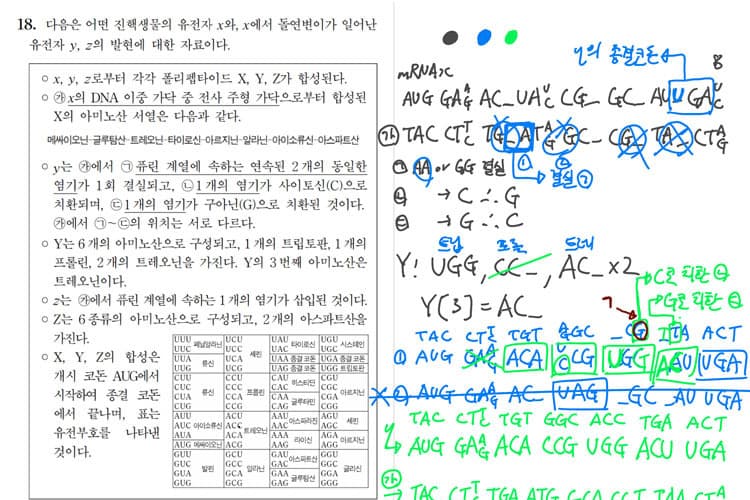 18. 다음은 어떤 진핵생물의 유전자 x와, x에서 돌연변이가 일어난
유전자 y, z의 발현에 대한 자료이다.
○ x, y, z로부터 각각 폴리펩타이드 X, Y, Z가 합성된다.
○ ㉮x의 DNA 이중 가닥 중 전사 주형 가닥으로부터 합성된
X의 아미노산 서열은 다음과 같다.
메싸이오닌-글루탐산-트레오닌-타이로신-아르지닌-알라닌-아이소류신-아스파트산
○ y는 ㉮에서 ㉠퓨린 계열에 속하는 연속된 2개의 동일한
염기가 1회 결실되고, ㉡1개의 염기가 사이토신(C)으로
치환되며, ㉢1개의 염기가 구아닌(G)으로 치환된 것이다.
㉮에서 ㉠~㉢의 위치는 서로 다르다.
○ Y는 6개의 아미노산으로 구성되고, 1개의 트립토판, 1개의
프롤린, 2개의 트레오닌을 가진다. Y의 3번째 아미노산은
트레오닌이다.
○ z는 ㉮에서 퓨린 계열에 속하는 1개의 염기가 삽입된 것이다.
○ Z는 6종류의 아미노산으로 구성되고, 2개의 아스파트산을
가진다.
○ X, Y, Z의 합성은
개시 코돈 AUG에서
시작하여 종결 코돈
에서 끝나며, 표는
유전부호를 나타낸
것이다.
UUU UUC 페닐알라닌 UCU UCC 세린 UAU UAC 타이로신 UGU UGC 시스테인
UUA UUG 류신 UCA UCG UAA 종결 코돈 UAG 종결 코돈 UGA 종결 코돈 UGG 트립토판
CUU CUC 류신 CCU CCC 프롤린 CAU CAC 히스티딘 CGU CGC 아르지닌
CUA CUG CCA CCG CAA CAG 글루타민 CGA CGG
AUU AUC 아이소류신 ACU ACC 트레오닌 AAU AAC 아스파라진 AGU AGC 세린
AUA AUG 메싸이오닌 ACA ACG AAA AAG 라이신 AGA AGG 아르지닌
GUU GUC 발린 GCU GCC 알라닌 GAU GAC 아스파트산 GGU GGC 글리신
GUA GUG GCA GCG GAA GAG 글루탐산 GGA GGG
y의 종결코돈
8
mRNA x
AUG GAG A AC_ UAU C CG_ GC_ AU UGA U C
㉮ TAC CTC T TG_ ATA G GC_ CG_ TA_ CTA G
㉠ AA or GG 결실 ① ② 결실 ㉠
㉡ → C ∴ G
㉢ → G ∴ C
트립 프롤 트레
Y! UGG, CC_, AC_ ×2
Y[3] = AC_
ㄱ C로 치환 ㉡
G로 치환 ㉢
TAC CTC T TGT GGC _CG _TA ACT
① AUG GAG A ACA CCG UGG ACU UGA
② AUG GAG A AC_ UAG _GC _AU UGA
TAC CTC T TGT GGC ACC TGA ACT
y AUG GAG A ACA CCG UGG ACU UGA
㉮